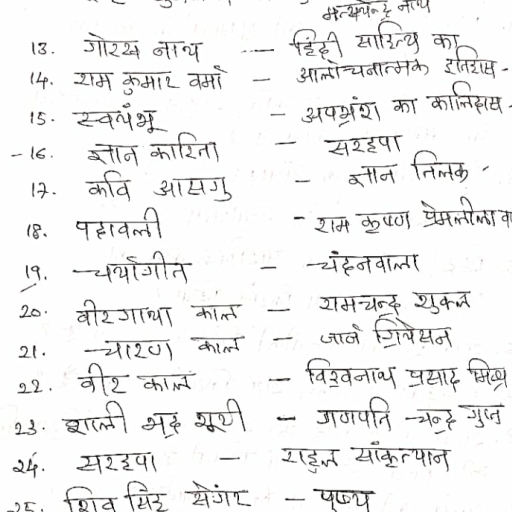 मत्स्येन्द्र नाथ
13. गोरख नाथ — हिंदी साहित्य का
14. राम कुमार वर्मा — आलोचनात्मक इतिहास -
15. स्वयंभू — अपभ्रंश का कालिदास -
- 16. ज्ञान कारिता — सरहपा
17. कवि आसगु — ज्ञान तिलक -
18. पदावली - राम कृष्ण प्रेमलीला
19. चर्यागीत — चंदनवाला
20. वीरगाथा काल — रामचन्द्र शुक्ल
21. चारण काल — जार्ज ग्रियेसन
22. वीर काल — विश्वनाथ प्रसाद मिश्र
23. शाली भद्र सूरी — गणपति चन्द्र गुप्त
24. सरहपा — राहुल सांकृत्यान
25. शिव सिंह सेगर — पुष्य